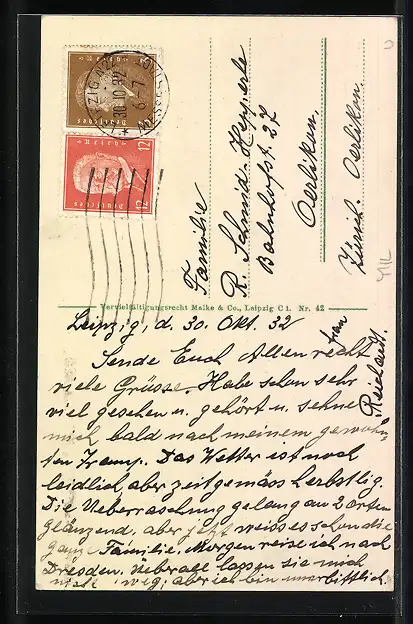 LEIPZIG
30.10.32
6-7
Deutsches Reich
Deutsches Reich
12 12
Familie
R. Schmid-Hepperle
Bahnhofst. 27
Oerlikon.
Zürich. Oerlikon.
Vervielfältigungsrecht Malke & Co., Leipzig C 1. Nr. 42
Leipzig, d. 30. Okt. 32
Sende Euch Allen recht
viele Grüsse. Habe schon sehr
viel gesehen u. gehört u. sehne
mich bald nach meinem gewohn-
ten Tramp. Das Wetter ist noch
leidlich, aber zeitgemäss herbstlig.
Die Ueberraschung gelang an 2 Orten
glänzend, aber jetzt weiss es schon die
ganze Familie. Morgen reise ich nach
Dresden. Ueberall lassen sie mich
nicht weg, aber ich bin unerbittlich.
Frau
Reichardt.